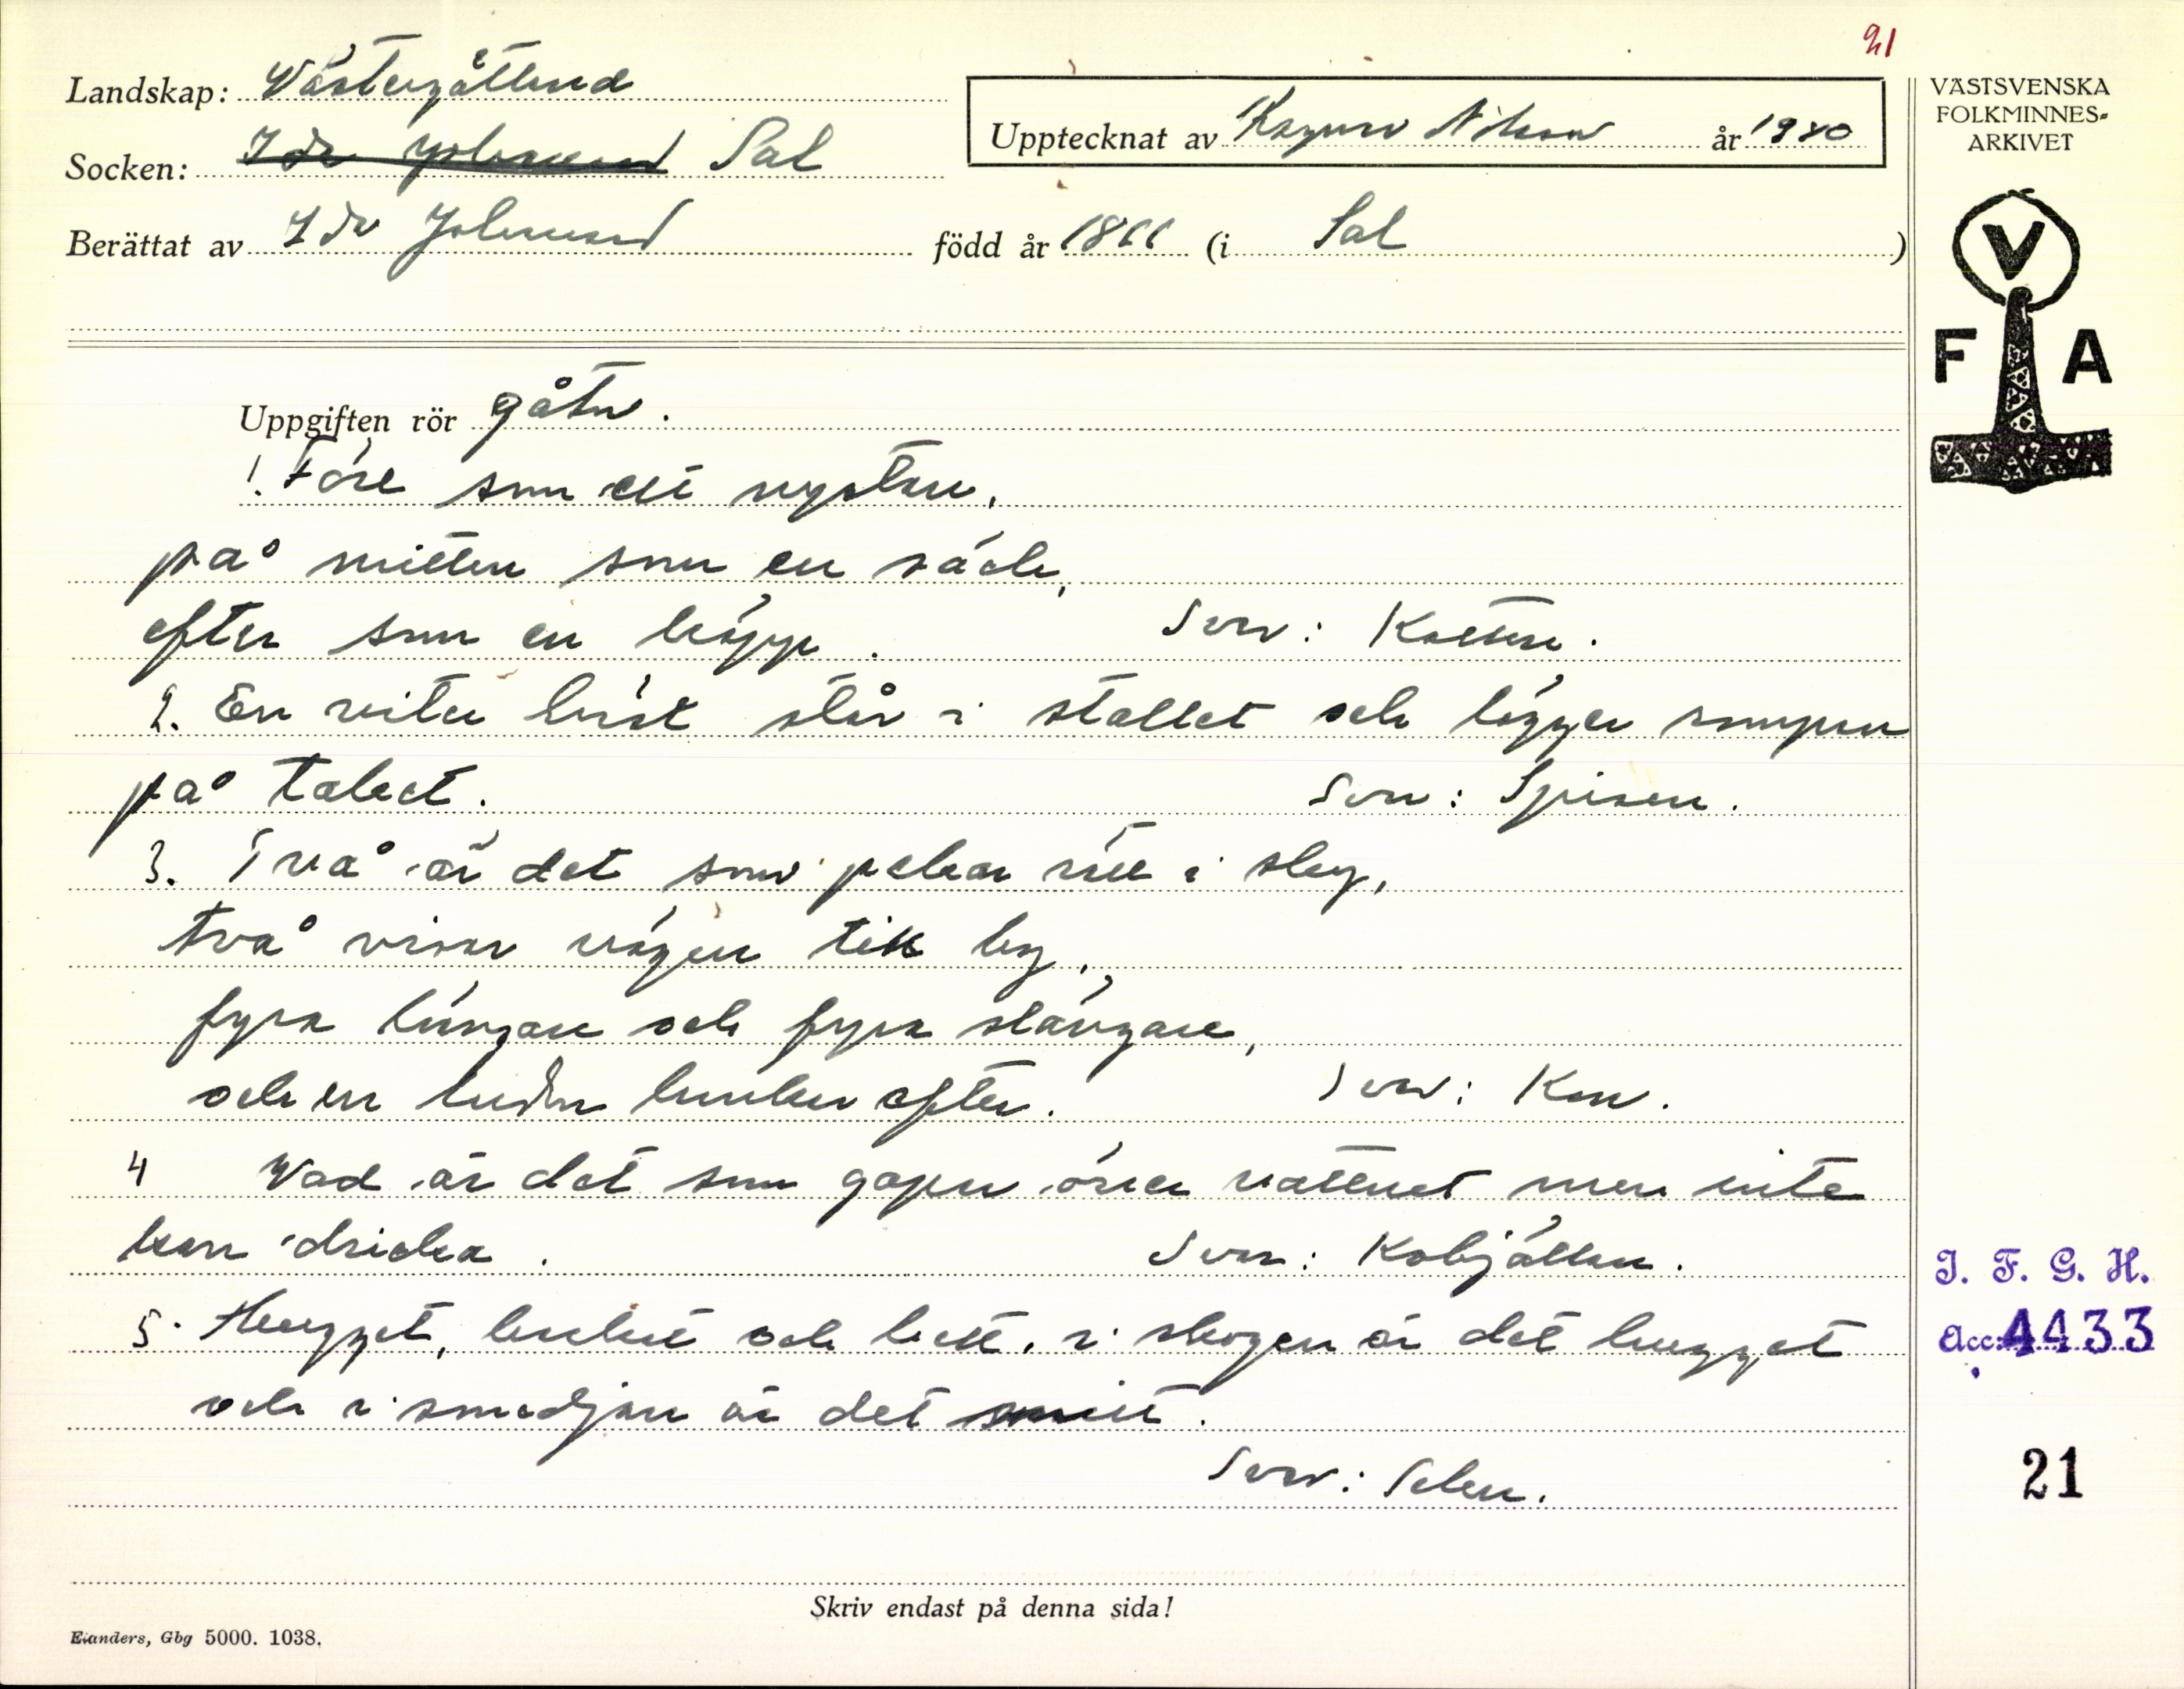 21
Landskap: Västergötland
Socken: Ida Johansson Sal
Upptecknat av Ragnar Nilsson år 1940
Berättat av Ida Johansson född år 1866 (i Sal)
VÄSTSVENSKA
FOLKMINNES-
ARKIVET
V
F A
Uppgiften rör gåtor.
1. Före som ett nystan,
på mitten som en säck,
efter som en käpp. Svar: Katten.
2. En viter häst står i stallet och lägger rumpan
på taket. Svar: Spisen.
3. Två är det som pekar rätt i sky,
två visar vägen till by,
fyra hängare och fyra slängare,
och en luden lunkar efter. Svar: Kon.
4 Vad är det som gapar över vattnet men inte
kan dricka. Svar: Kobjällan.
5. Hugget, huket och lett, i skogen är det hugget
och i smedjan är det smitt.
Svar: Selen.
I. F. G. H.
Acc: 4433
21
Skriv endast på denna sida!
Elanders, Gbg 5000. 1038.